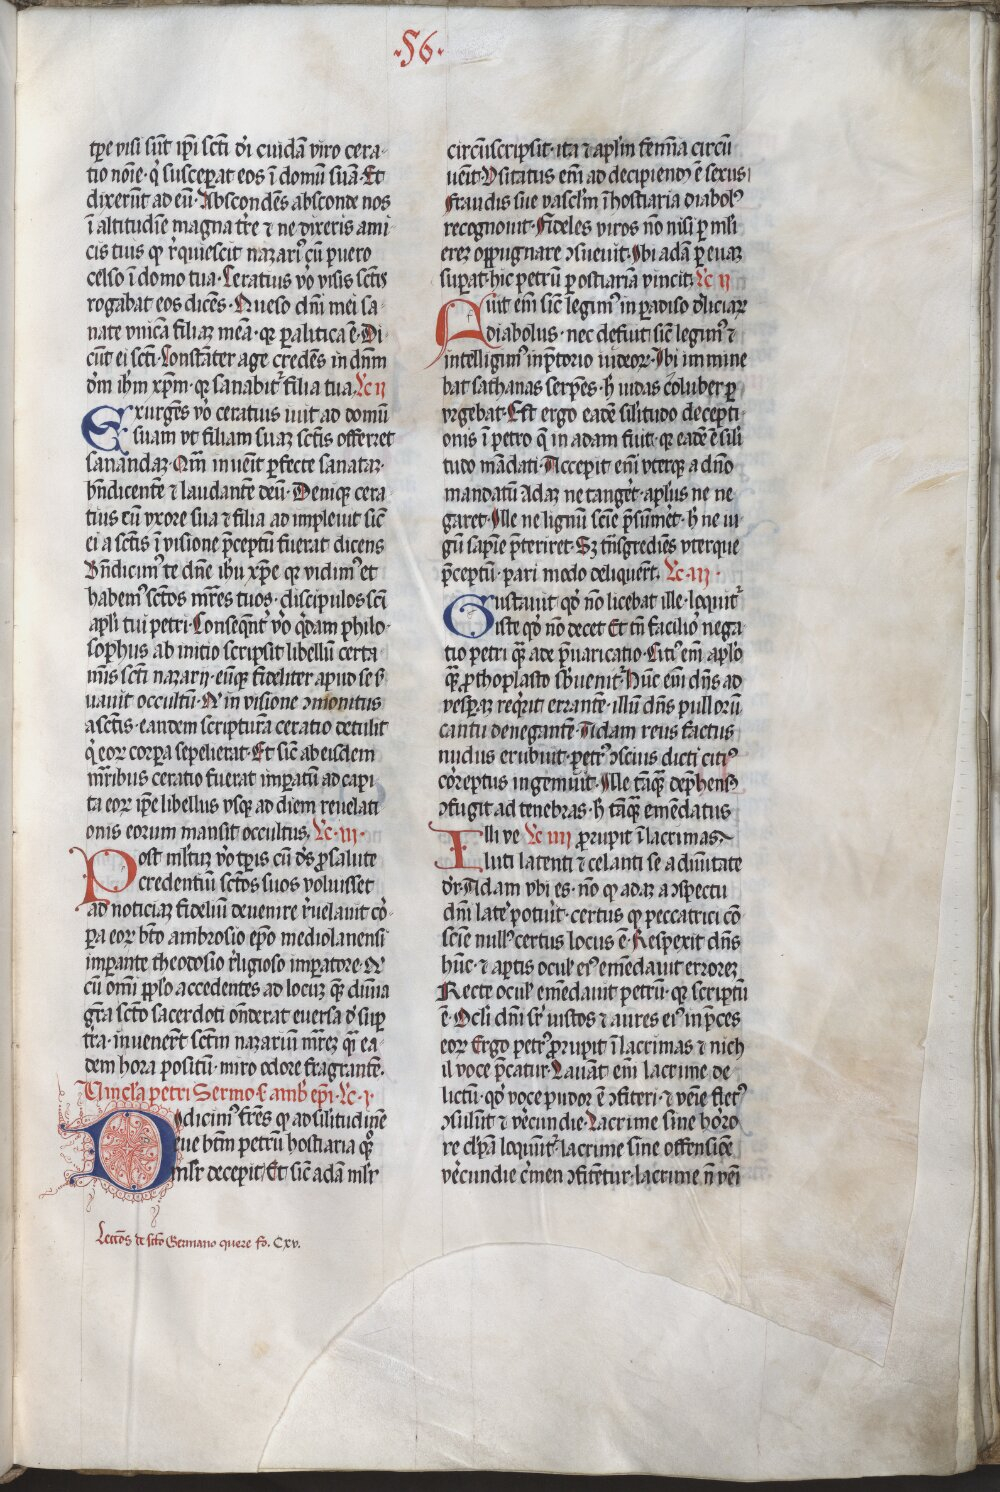 ·56·
tp̄e visi sūt ip̄i scī di cuidā viro cera-
tio noīe· q̇ susceperat eos ī domū suā· Et
dixerūt ad eū· Abscondēs absconde nos
ī altitudīe magna tr̄e ⁊ ne dixeris ami-
cis tuis qꝫ r̄quiescit nazari⁹ cū puero
celso ī domo tua· Ceratius v̄o visis scīs
rogabat eos dicēs· Queso dn̄i mei sa-
nate vnicā filiaꝫ meā· qꝫ ꝑalitica ē· Di-
cūt ei scī· Constāter age credēs in dn̄m
dm̄ ihm̄ xp̄m· qꝫ sanabit᷑ filia tua· Lc̄ ij
Exurgēs v̄o ceratius iuit ad domū
suam vt filiam suaꝫ scīs offerret
sanandaꝫ· Qm̄ inuēit ꝑfecte sanataꝫ·
bn̄dicentē ⁊ laudantē deū· Deniqꝫ cera-
tius cū vxore sua ⁊ filia adimpleuit sic̄
ei a scīs ī visione p̄ceptū fuerat dicens
Bn̄dicim⁹ te dn̄e ihū xp̄e qꝫ vidim⁹ et
habem⁹ scōs mr̄es tuos· discipulos scī
apl̄i tui petri· Conseqn̄t v̄o q̇dam philo-
sophus ab initio scripsit libellū certa-
mīs scī nazarij· eūqꝫ fideliter apud se ẜ-
uauit occultū· Qi in visione ꝯmonitus
a scīs· eandem scripturā ceratio detulit
q̇ eoꝝ corꝑa sepelierat· Et sic̄ ab eisdem
mr̄ibus ceratio fuerat imꝑatū ad capi-
ta eoꝝ ip̄e libellus vsqꝫ ad diem reuelati-
onis eorum mansit occultus· Lc̄· iij·
Post ml̄tuꝫ v̄o tꝑis cū ds̄ ꝓ salute
credentiū scōs suos voluisset
ad noticiaꝫ fideliū deuenire r̄uelauit cor-
ꝑa eoꝝ bt̄o ambrosio ep̄o mediolanensi
imꝑante theodosio r̄ligioso imꝑatore· Qi
cū om̄i pp̄lo accedentes ad locuꝫ quē diuīa
gr̄a scō sacerdoti on̄derat euersa d̄suꝑ
tr̄a· inuenerūt scm̄ nazariū mr̄eꝫ quasi ea-
dem hora positū· miro odore fragrantē·
Vincl̄a petri Sermo s. amb̄ ep̄i· Lc̄· j·
Didicim⁹ fr̄es qꝫ ad silitudinē
eue btm̄ petrū hostiaria qꝫ
ml̄r decepit· Et sic̄ adā ml̄r
Lecc̄ōs de scō Germano quere fo. Cxv.
circūscripsit· ita ⁊ apl̄m femīa circū-
uēit· Vsitatus em̄ ad decipiendꝫ ē sexus·
Fraudis sue vascl̄m ī hostiaria diabol⁹
recognouit· Fideles viros nō nisi ꝑ mli-
ereꝫ oppugnare ꝯsueuit· Ibi adā ꝑ euaꝫ
suꝑat· hic petrū ꝑ ostiariā vincit· Lc̄ ij
Fuit em̄ sic̄ legim⁹ in ꝑadiso d̄liciaꝝ
diabolus· nec defuit sic̄ legim⁹ ⁊
intelligim⁹ in p̄torio iudeoꝝ· Ibi immine-
bat sathanas serpēs· h̄ iudas coluber ꝑ-
vrgebat· Est ergo eadē silitudo decepti-
onis ī petro q̄ in adam fuit· qꝫ eadē ē sili-
tudo mādati· Accepit em̄ vterqꝫ a dn̄o
mandatū Adaꝫ ne tanger̄t· apl̄us ne ne-
garet· Ille ne lignū scīe p̄sūmer̄t· h̄ ne iu-
gū sapīe p̄teriret· Sꝫ trāsgrediēs vterque
p̄ceptū· pari modo deliquer̄t· Lc̄· iij·
Gustauit qd̓ nō licebat ille· loquit᷑
iste qd̓ nō decet Et tm̄ facilior nega-
tio petri quā ade p̄uaricatio· Citi⁹ em̄ apl̄o
quā ꝓthoplasto sb̄uenit᷑· Hūc em̄ dn̄s ad
vesꝑaꝫ req̇rit errantē· illū dn̄s pullorū
cantu denegantē· Adam reus factus
nudus erubuit· petr⁹ ꝯscius dicti citi⁹
correptus ingemuit· Ille tāqꝫ depr̄hens⁹
ꝯfugit ad tenebras· h̄ tāqꝫ emēdatus
Illi ve- Lc̄ iiij ꝓrupit ī lacrimas
luti latenti ⁊ celanti se a diuītate
dr̄· Adam vbi es· nō qꝫ adaꝫ a ꝯspectu
dn̄i laterē potuit· certus qꝫ peccatrici cō-
sciē null⁹ certus locus ē· Respexit dn̄s
hūc· ⁊ aꝑtis ocul̄ ei⁹ emēdauit erroreꝫ
Recte ocul̄ emēdauit petrū· qꝫ scriptū
ē· Ocl̄i dn̄i sr̄ iustos ⁊ aures ei⁹ in p̄ces
eoꝝ Ergo petr⁹ ꝓrupit ī lacrimas ⁊ nich-
il voce p̄catur· Lauāt em̄ lacrime de-
lictū· qd̓ voce pudoꝫ ē ꝯfiteri· ⁊ venīe flet⁹
ꝯsulūt ⁊ v̄ecundie· Lacrime sine horro-
re cl̄pā loquūt᷑· lacrime sine offensiōe
v̄ecundie c̄men ꝯfitent᷑· lacrime n̄ vēi-